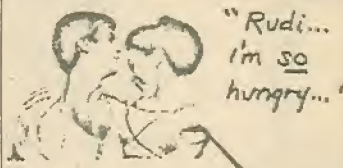 "Rudi...
I'm so
hungry..."